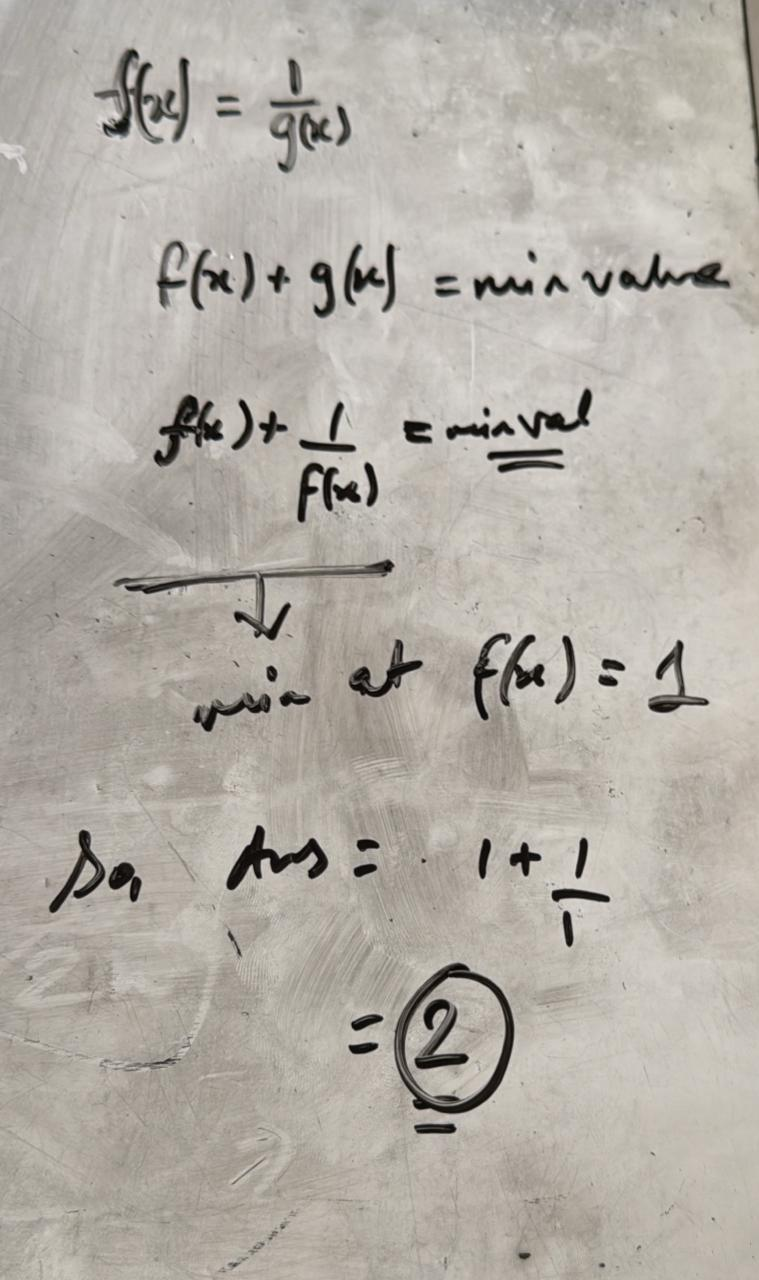 f(x) = 1/g(x)
f(x) + g(x) = min value
f(x) + 1/f(x) = min val
min at f(x) = 1
So, Ans = 1 + 1/1
= 2